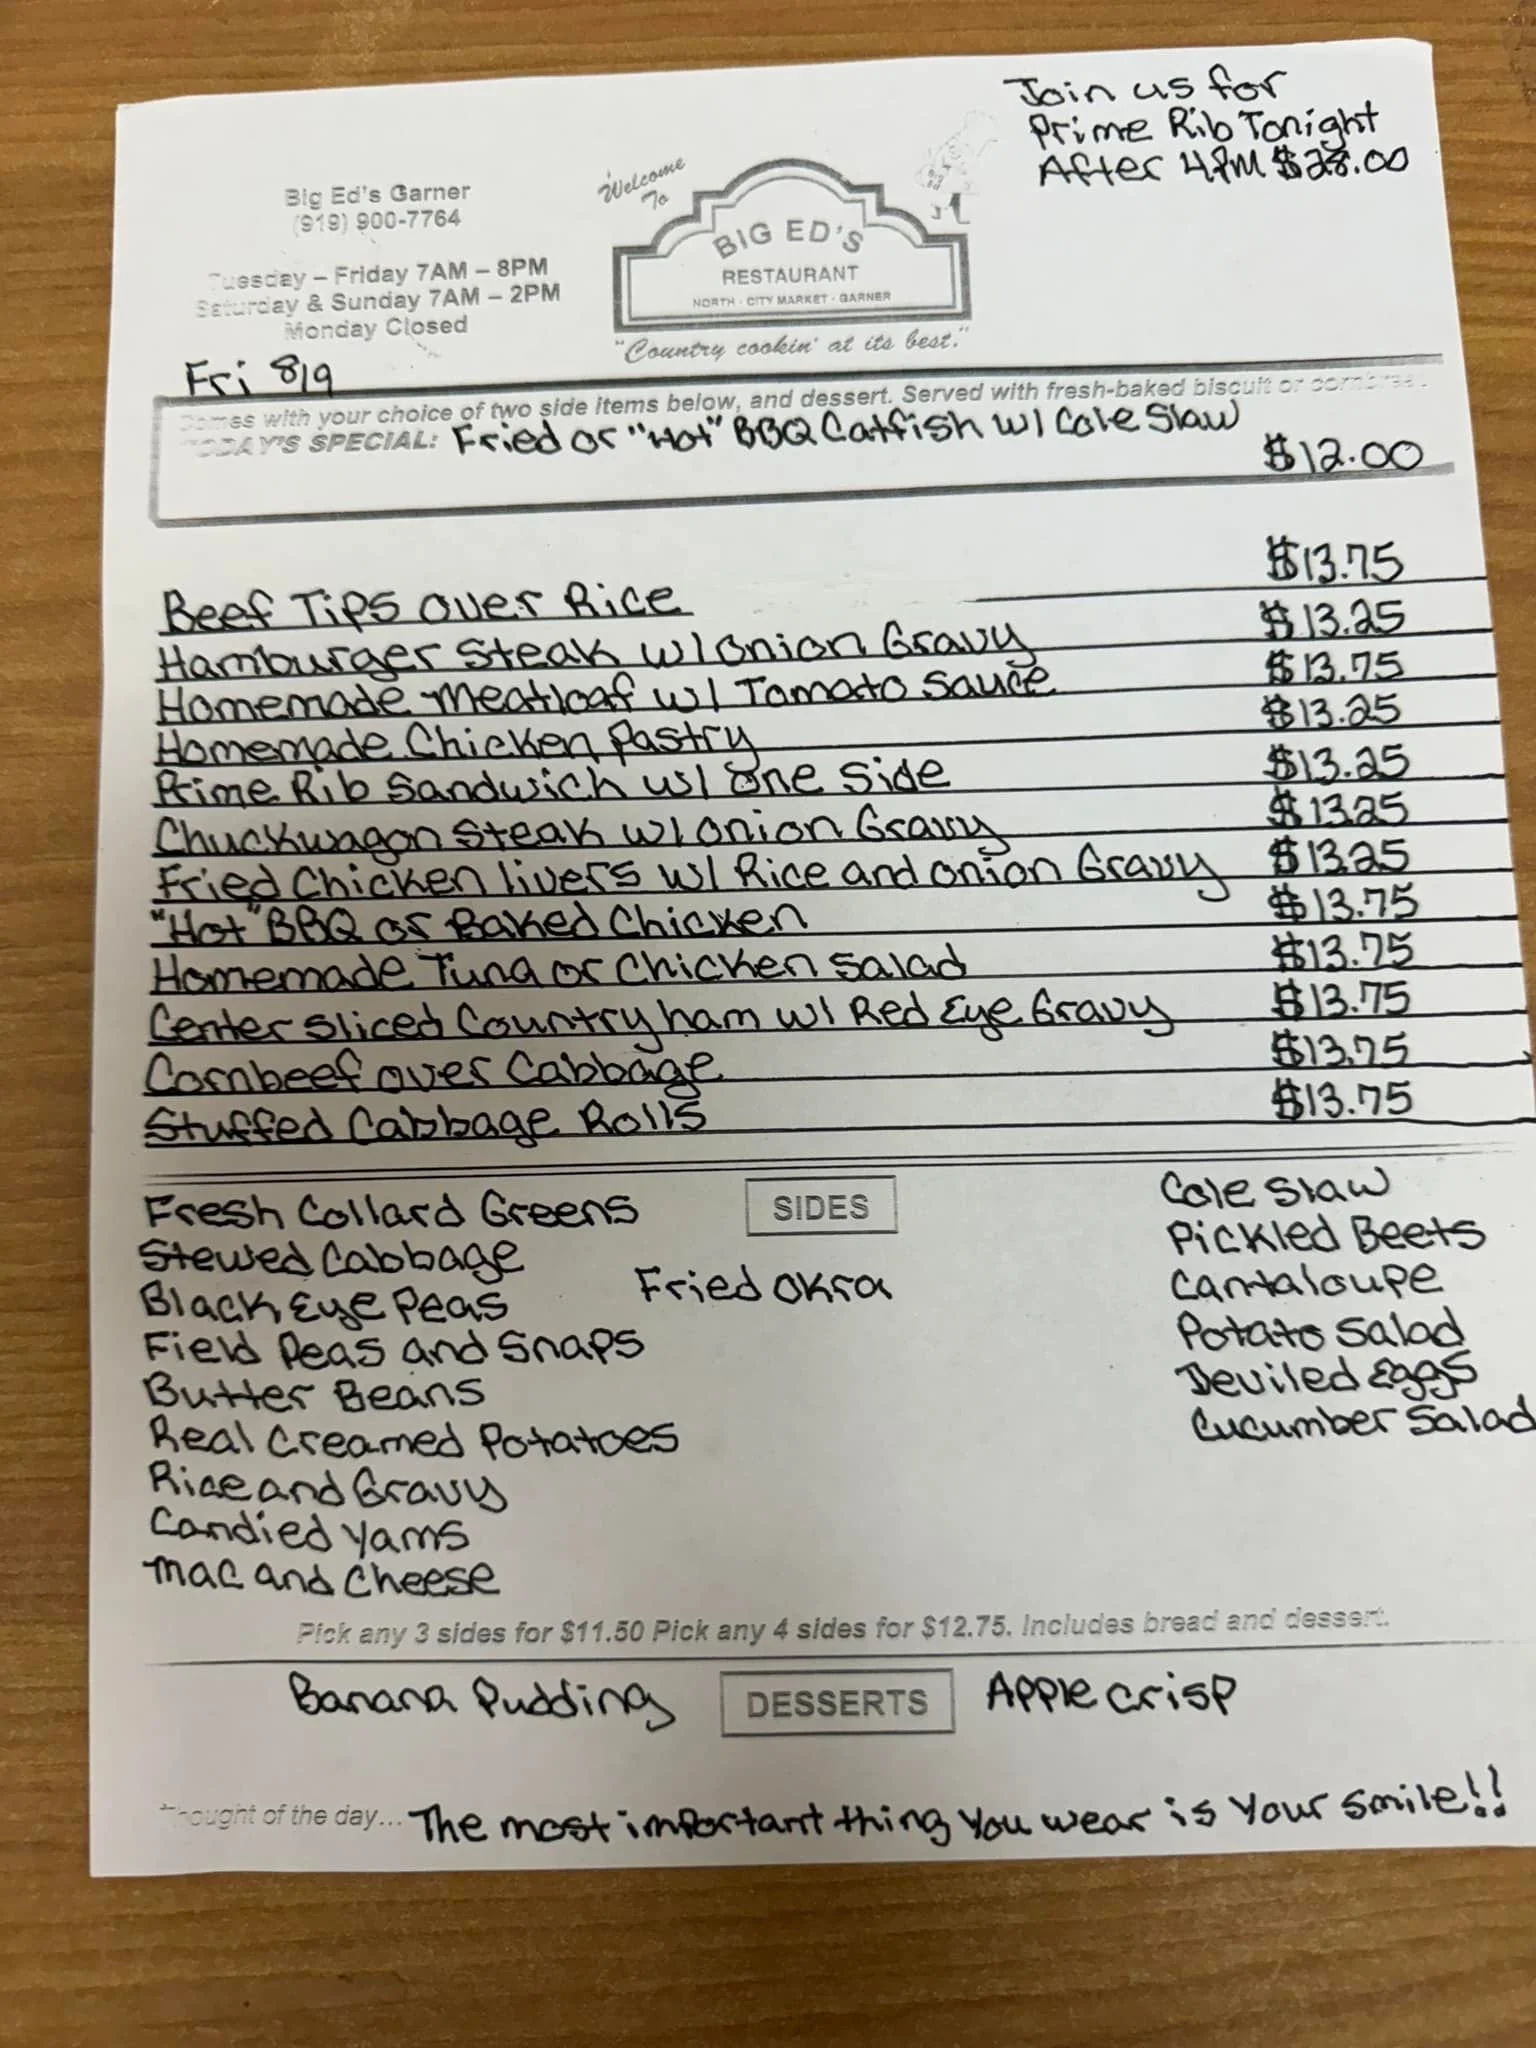 Join us for
Prime Rib Tonight
After 4PM $28.00
Big Ed's Garner
(919) 900-7764
Tuesday – Friday 7AM – 8PM
Saturday & Sunday 7AM – 2PM
Monday Closed
Welcome
To
BIG ED'S
RESTAURANT
NORTH · CITY MARKET · GARNER
"Country cookin' at its best."
Fri 8/9
Comes with your choice of two side items below, and dessert. Served with fresh-baked biscuit or cornbread.
TODAY'S SPECIAL: Fried or "Hot" BBQ Catfish w/ Cole Slaw
$12.00
Beef Tips over Rice $13.75
Hamburger Steak w/ onion Gravy $13.25
Homemade Meatloaf w/ Tomato Sauce $13.75
Homemade Chicken Pastry $13.25
Prime Rib Sandwich w/ one Side $13.25
Chuckwagon Steak w/ onion Gravy $13.25
Fried Chicken livers w/ Rice and onion Gravy $13.25
"Hot" BBQ or Baked Chicken $13.75
Homemade Tuna or Chicken Salad $13.75
Center Sliced Country ham w/ Red Eye Gravy $13.75
Cornbeef over Cabbage $13.75
Stuffed Cabbage Rolls $13.75
SIDES
Fresh Collard Greens
Stewed Cabbage
Black Eye Peas
Field Peas and Snaps
Butter Beans
Real Creamed Potatoes
Rice and Gravy
Candied Yams
Mac and Cheese
Fried Okra
Cole Slaw
Pickled Beets
Cantaloupe
Potato Salad
Deviled Eggs
Cucumber Salad
Pick any 3 sides for $11.50 Pick any 4 sides for $12.75. Includes bread and dessert.
Banana Pudding DESSERTS Apple Crisp
Thought of the day... The most important thing You wear is Your Smile!!